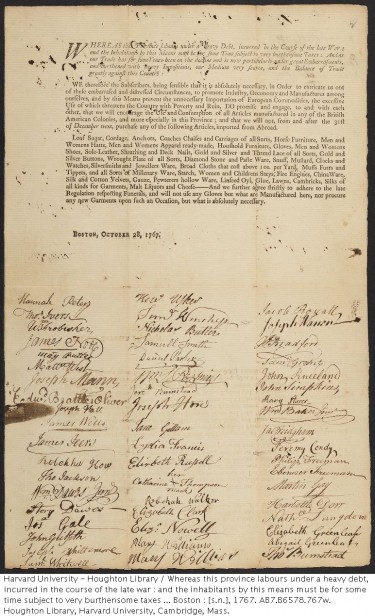 WHEREAS this Province labours under a heavy Debt, incurred in the Course of the late War;
and the Inhabitants by this Means must be for some Time subject to very burthensome Taxes: And as
our Trade has for some Years been on the decline, and is now particularly under great Embarrassments,
and burthened with heavy Impositions, our Medium very scarce, and the Balance of Trade
greatly against this Country:
WE therefore the Subscribers, being sensible that it is absolutely necessary, in Order to extricate us out
of these embarrassed and distressed Circumstances, to promote Industry, Oeconomy and Manufactures among
ourselves, and by this Means prevent the unnecessary Importation of European Commodities, the excessive
Use of which threatens the Country with Poverty and Ruin, DO promise and engage, to and with each
other, that we will encourage the Use and Consumption of all Articles manufactured in any of the British
American Colonies, and more especially in this Province; and that we will not, from and after the 31st
of December next, purchase any of the following Articles, imported from Abroad.
Loaf Sugar, Cordage, Anchors, Coaches Chaises and Carriages of all Sorts, Horse Furniture, Men and
Womens Hatts, Men and Womens Apparel ready-made, Houshold Furniture, Gloves, Men and Womens
Shoes, Sole-Leather, Sheathing and Deck Nails, Gold and Silver and Thread Lace of all Sorts, Gold and
Silver Buttons, Wrought Plate of all Sorts, Diamond Stone and Paste Ware, Snuff, Mustard, Clocks and
Watches, Silversmiths and Jewellers Ware, Broad Cloths that cost above 10s. per Yard, Muffs Furrs and
Tippets, and all Sorts of Millenary Ware, Starch, Women and Childrens Stays, Fire Engines, China Ware,
Silk and Cotton Velvets, Gauze, Pewterers hollow Ware, Linseed Oyl, Glue, Lawns, Cambricks, Silks of
all kinds for Garments, Malt Liquors and Cheese—And we further agree strictly to adhere to the late
Regulation respecting Funerals, and will not use any Gloves but what are Manufactured here, nor procure
any new Garments upon such an Occasion, but what is absolutely necessary.
BOSTON, OCTOBER 28, 1767.
Hannah Peters
Thos Ivers
James
May Butler
Joseph Mann
Joseph Hall
James Wills
James Ivers
Rebekka How
Tho Jackson
Wm Dawes Junr
Story Dawes
Jos Gale
John Griffith
Joseph Whittemore
Nicholas Butler
Samuell Smith
Joseph Hovs
Jane Gillam
Lydia Francis
Elizabeth Russell
her
Catharine Thompson
mark
Rebekah Walker
Elizabeth Clark
Eliza Nowell
Mary Williams
Mary
Jacob Rogall
Joseph Hanson
Bradford
John Kneeland
John Simpkins
Mary Pierce
Wm Baker Junr
Jeremy Condy
Philip Freeman
Ebenezer Freeman
Martin Gay
Nath Langdon
Elizabeth Greenleaf
Abigail Greenleaf
Thos Bumstead
Harvard University - Houghton Library / Whereas this province labours under a heavy debt,
incurred in the course of the late war : and the inhabitants by this means must be for some
time subject to very burthensome taxes ... Boston : [s.n.], 1767. AB7.B6578.767w.
Houghton Library, Harvard University, Cambridge, Mass.